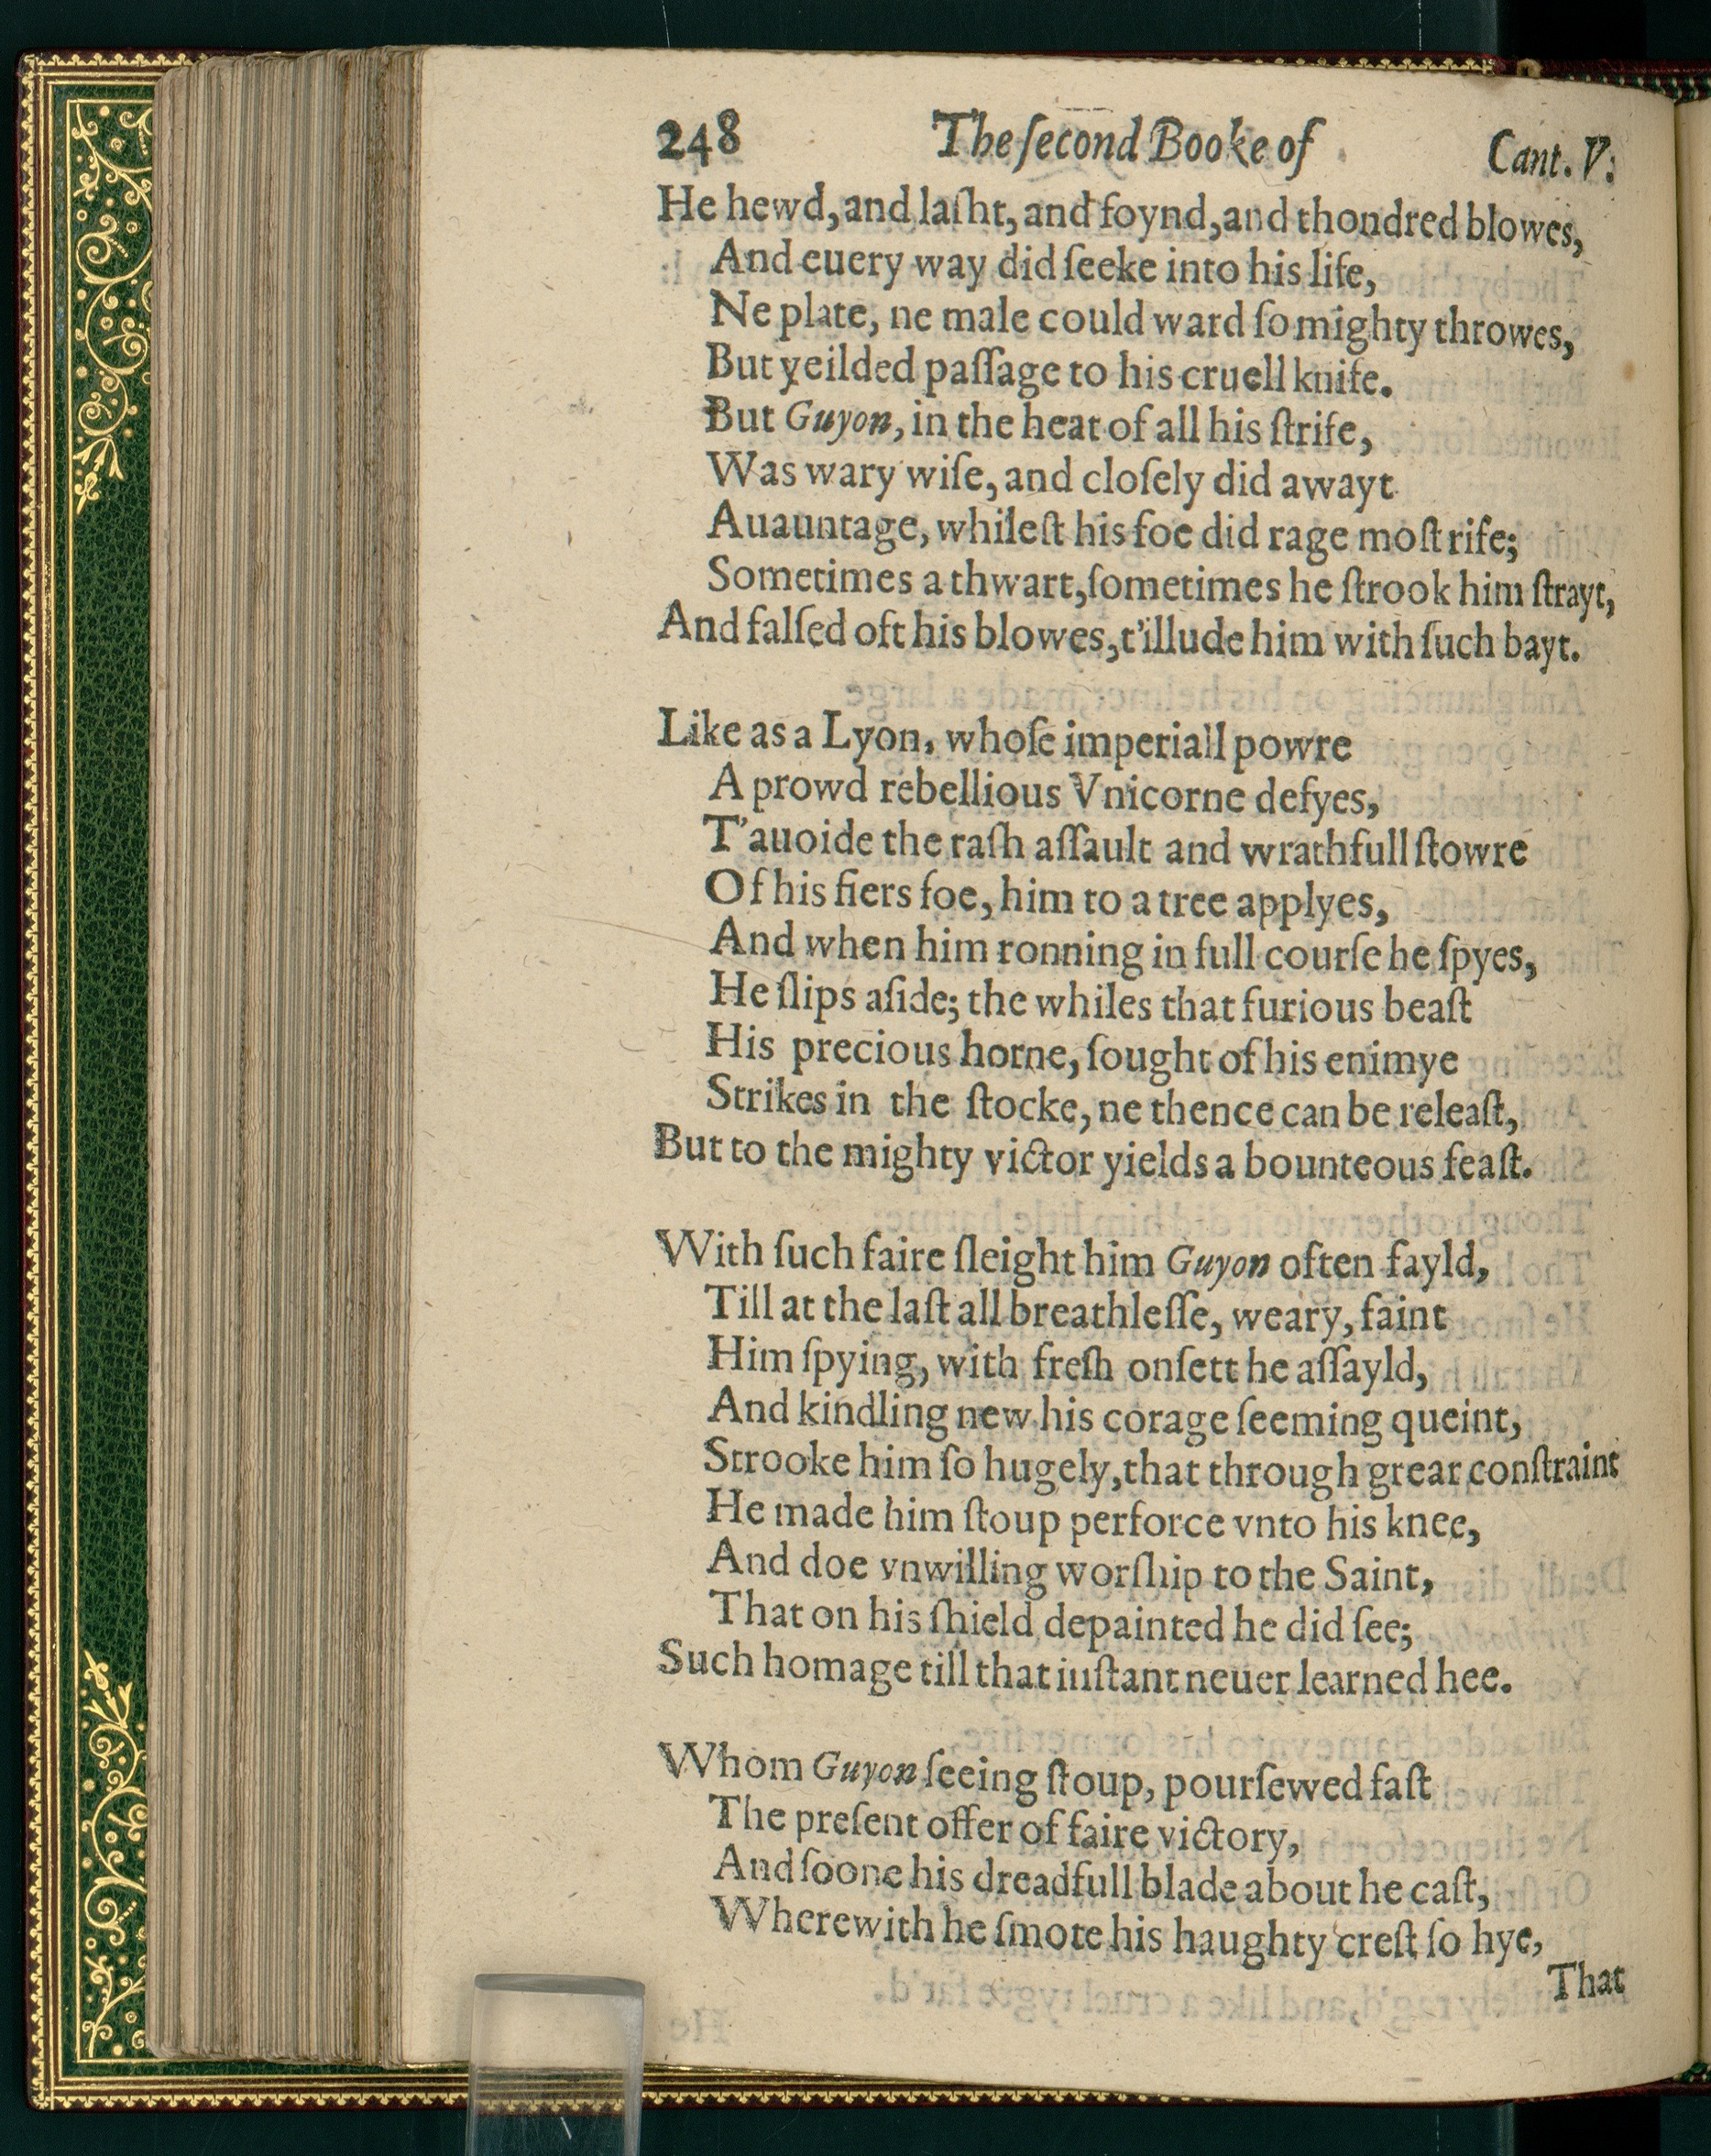 248 The ſecond Booke of Cant. V.
He hewd, and laſht, and foynd, and thondred blowes,
And euery way did ſeeke into his life,
Ne plate, ne male could ward ſo mighty throwes,
But yeilded paſſage to his cruell knife.
But Guyon, in the heat of all his ſtrife,
Was wary wiſe, and cloſely did awayt
Auauntage, whileſt his foe did rage moſt rife;
Sometimes a thwart, ſometimes he ſtrook him ſtrayt,
And falſed oft his blowes, t'illude him with ſuch bayt.
Like as a Lyon, whoſe imperiall powre
A prowd rebellious Vnicorne defyes,
T'auoide the raſh aſſault and wrathfull ſtowre
Of his fiers foe, him to a tree applyes,
And when him ronning in full courſe he ſpyes,
He ſlips aſide; the whiles that furious beaſt
His precious horne, ſought of his enimye
Strikes in the ſtocke, ne thence can be releaſt,
But to the mighty victor yields a bounteous feaſt.
With ſuch faire ſleight him Guyon often fayld,
Till at the laſt all breathleſſe, weary, faint
Him ſpying, with freſh onſett he aſſayld,
And kindling new his corage ſeeming queint,
Strooke him ſo hugely, that through grear conſtraint
He made him ſtoup perforce vnto his knee,
And doe vnwilling worſhip to the Saint,
That on his ſhield depainted he did ſee;
Such homage till that iuſtant neuer learned hee.
Whom Guyon ſeeing ſtoup, pourſewed faſt
The preſent offer of faire victory,
And ſoone his dreadfull blade about he caſt,
Wherewith he ſmote his haughty creſt ſo hye,
That